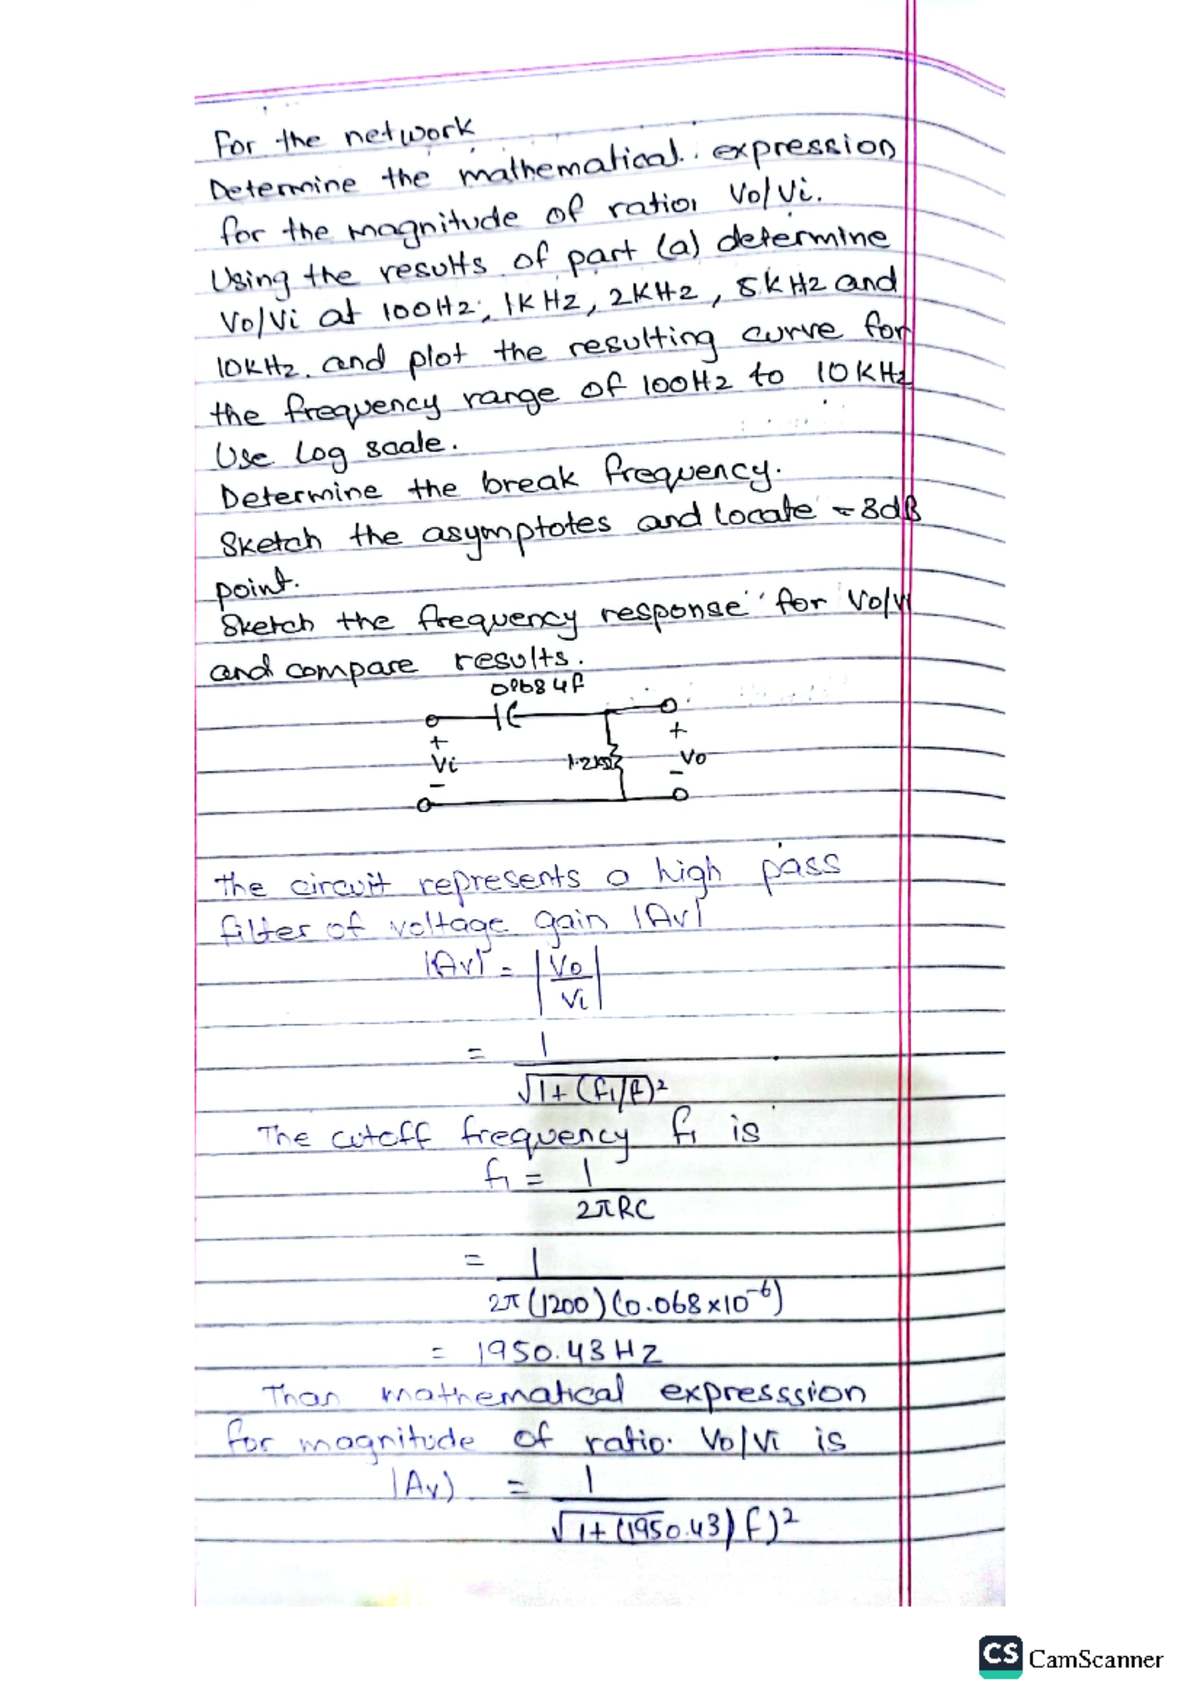 For the network
Determine the mathematical expression
for the magnitude of ratio, Vo/Vi.
Using the results of part (a) determine
Vo/Vi at 100Hz, 1KHz, 2KHz, 5KHz and
10KHz. and plot the resulting curve for
the frequency range of 100Hz to 10KHz
Use Log scale.
Determine the break frequency.
Sketch the asymptotes and locate -3dB
point.
Sketch the frequency response for Vo/Vi
and compare results.
0.068 μf
+ +
Vi 1.2kΩ Vo
- -
The circuit represents a high pass
filter of voltage gain |Av|
|Av| = |Vo/Vi|
= 1/√1+(f1/f)²
The cutoff frequency f1 is
f1 = 1/2πRC
= 1/2π(1200)(0.068×10⁻⁶)
= 1950.43HZ
Than mathematical expresssion
for magnitude of ratio. Vo/Vi is
|Av) = 1/√1+(1950.43)f)²
CS CamScanner